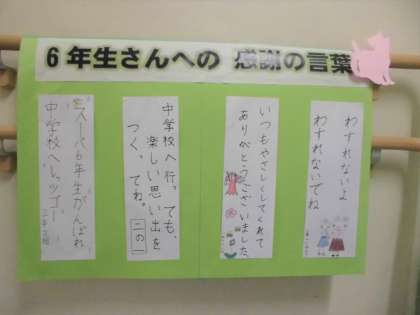 6年生さんへの 感謝の言葉
わすれないよ
わすれないでね
いつもやさしくしてくれて
ありがとうございました
中学校へ行っても、
楽しい思い出を
つくってね。
二の一
スーパー6年生がんばれ
中学校へレッツゴー